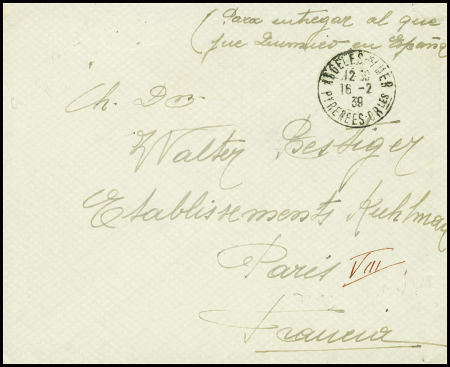 (Para entregar al que
fue Químico en España
ARGELÈS-S-MER
12 30
16 -2
39
PYRÉNÉES-ORLES
Ch. Dor
Walter Bestiger
Etablissements Kuhlman
Paris VIII
Francia